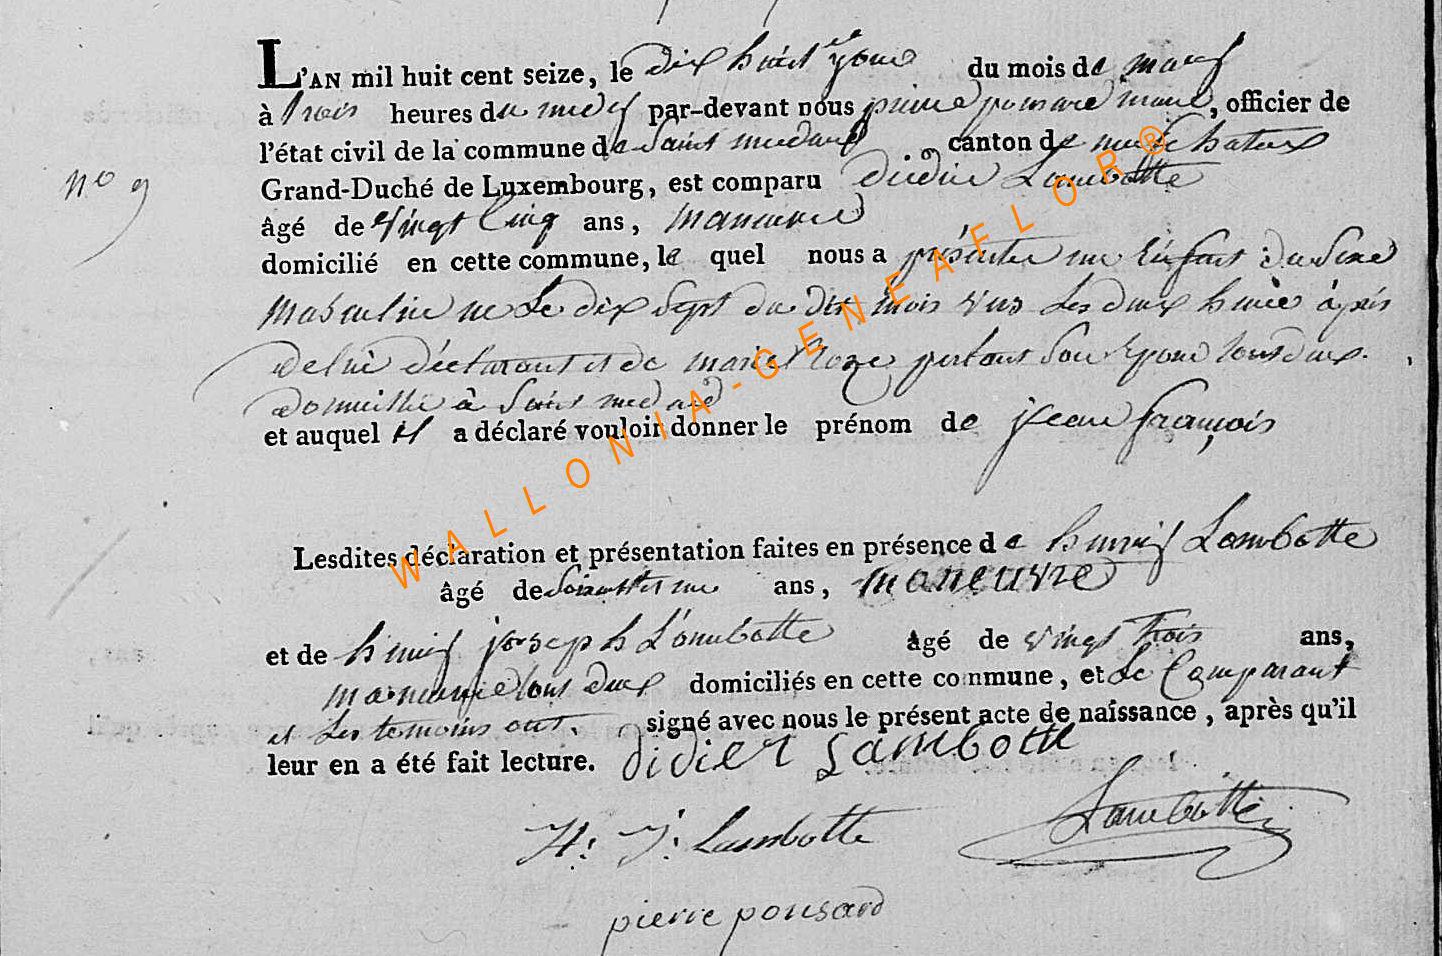 L'AN mil huit cent seize, le dix huit du mois de mars
à trois heures du par-devant nous maire, officier de
l'état civil de la commune de Saint medard canton de
Grand-Duché de Luxembourg, est comparu didier Lambotte
n° 9
âgé de vingt Cinq ans, maneuvre
domicilié en cette commune, le quel nous a présenter un Enfant du Sexe
masculin né Le dix Sept du dit mois vers Les deux après
de lui déclarant et de marie Son tous deux
à Saint medard
et auquel il a déclaré vouloir donner le prénom de jean françois
Lesdites déclaration et présentation faites en présence de Lambotte
âgé de ans, maneuvre
et de joseph Lambotte âgé de vingt trois ans,
tous deux domiciliés en cette commune, et Le Comparant
et Les temoins ont signé avec nous le présent acte de naissance, après qu'il
leur en a été fait lecture. didier Lambotte
H: J: Lambotte Lambotte
pierre ponsard
WALLONIA-GENEAFLOR®